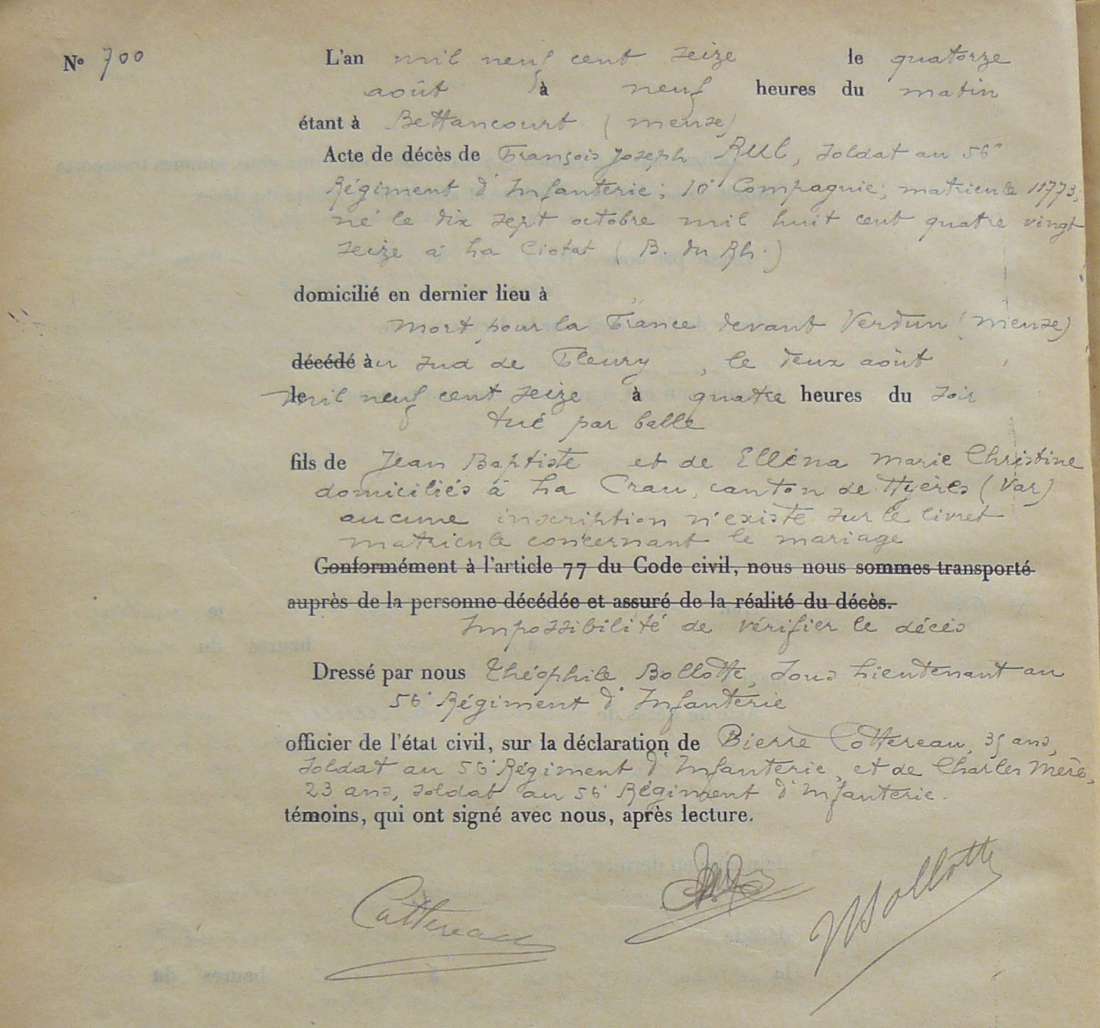 N° 700
L'an mil neuf cent seize le quatorze
août à neuf heures du matin
étant à Bettancourt (Meuse)
Acte de décès de François Joseph RUL, soldat au 56e
Régiment d'Infanterie; 10e Compagnie; matricule 11773,
né le dix sept octobre mil huit cent quatre vingt
seize à La Ciotat (B. du Rh.)
domicilié en dernier lieu à
Mort pour la France devant Verdun (Meuse)
décédé au sud de Fleury, le deux août
le mil neuf cent seize à quatre heures du soir
tué par balle
fils de Jean Baptiste et de Elléna Marie Christine
domiciliés à La Crau, canton de Hyères (Var)
aucune inscription n'existe sur le livret
matricule concernant le mariage
Conformément à l'article 77 du Code civil, nous nous sommes transporté
auprès de la personne décédée et assuré de la réalité du décès.
Impossibilité de vérifier le décès
Dressé par nous Théophile Bollotte, Sous Lieutenant au
56e Régiment d'Infanterie
officier de l'état civil, sur la déclaration de Pierre Cottereau, 35 ans,
soldat au 56e Régiment d'Infanterie, et de Charles Mère,
23 ans, soldat au 56e Régiment d'Infanterie.
témoins, qui ont signé avec nous, après lecture.
Cottereau Bollotte